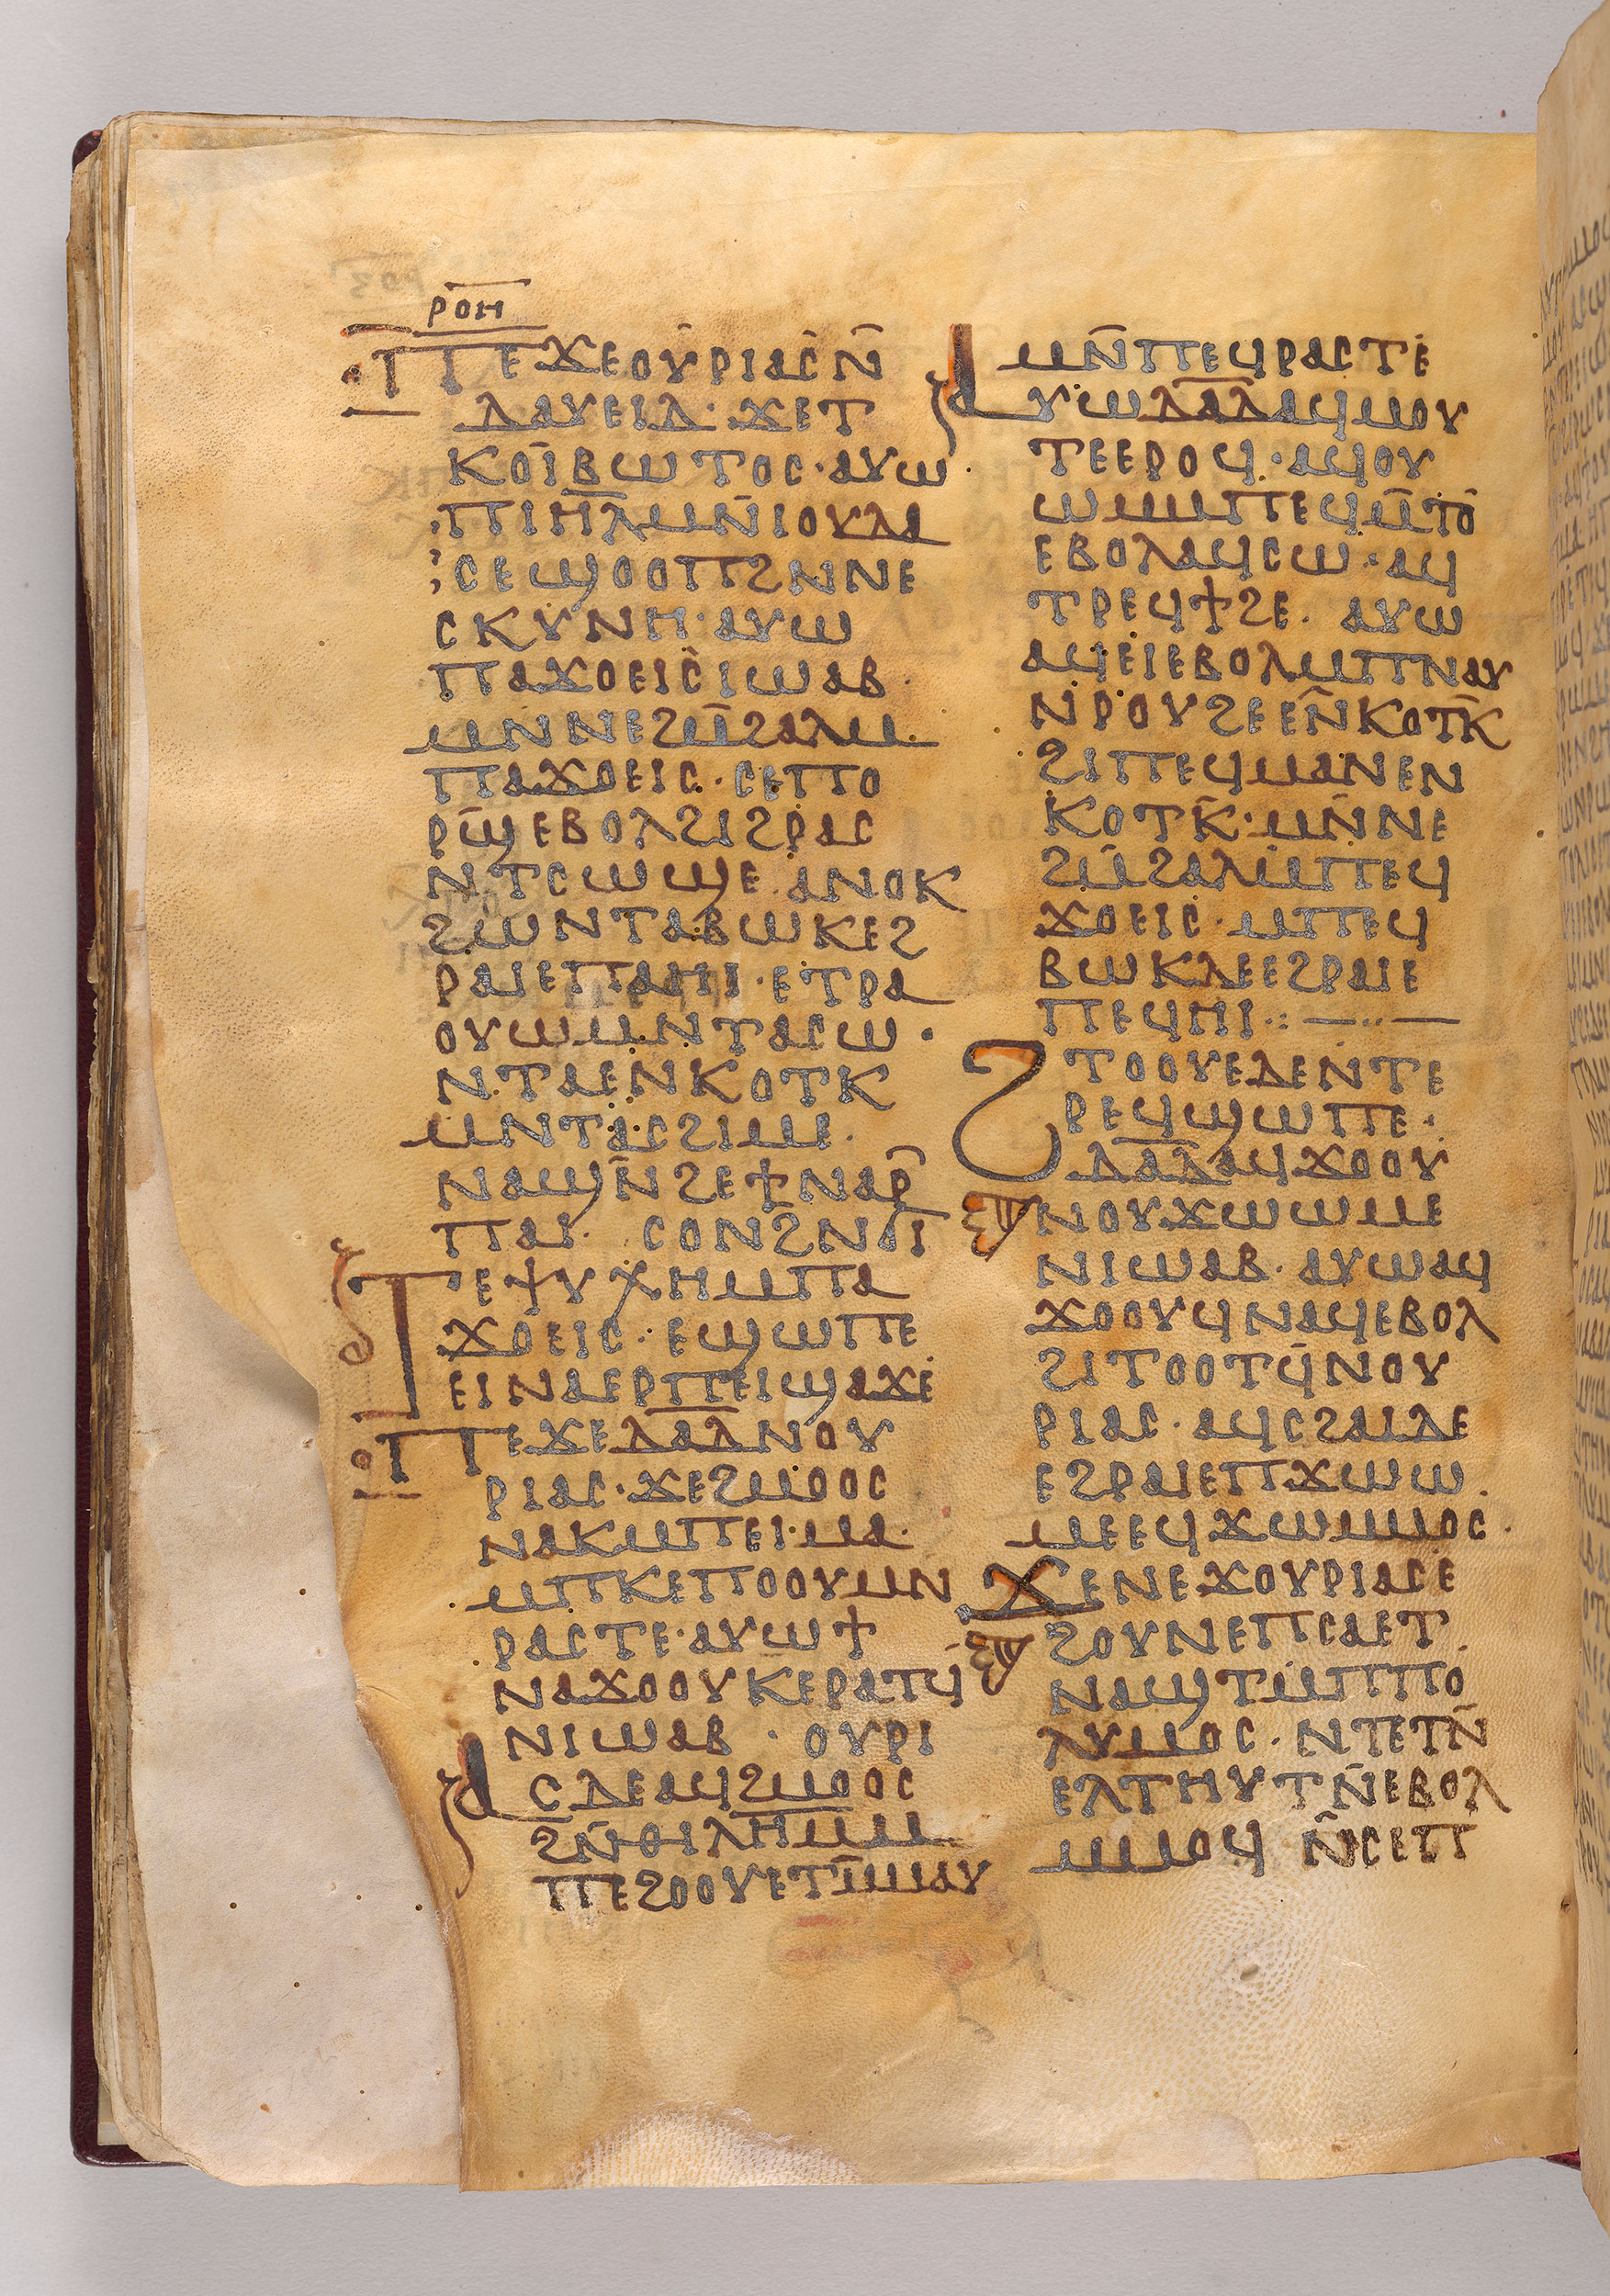 ⲣⲟⲏ
ⲡⲉϫⲉⲟⲩⲣⲓⲁⲥⲛ̄
ⲇⲁⲩⲉⲓⲇ· ϫⲉⲧ
ⲕⲟⲓⲃⲱⲧⲟⲥ· ⲁⲩⲱ
ⲡⲓⲏ̄ⲗⲙⲛ̄ⲓⲟⲩⲇⲁ
ⲥⲉϣⲟⲟⲡϩⲛⲛⲉ
ⲥⲕⲩⲛⲏ· ⲁⲩⲱ
ⲡⲁϫⲟⲉⲓⲥⲓⲱⲁⲃ·
ⲙⲛⲛⲉϩⲙ̄ϩⲁⲗⲙ
ⲡⲁϫⲟⲉⲓⲥ· ⲥⲉⲡⲟ
ⲣϣ̄ⲉⲃⲟⲗϩⲓϩⲣⲁⲥ
ⲛⲧⲥⲱϣⲉ· ⲁⲛⲟⲕ
ϩⲱⲛⲧⲁⲃⲱⲕⲉϩ
ⲣⲁⲓⲉⲡⲁⲏⲓ· ⲉⲧⲣⲁ
ⲟⲩⲱⲙⲛⲧⲁⲥⲱ·
ⲛⲧⲁⲉⲛⲕⲟⲧⲕ
ⲙⲛⲧⲁⲥϩⲓⲙⲉ·
ⲛⲁϣⲛ̄ϩⲉϯⲛⲁⲣ̄
ⲡⲁⲓ· ⲥⲟⲛϩⲛϭⲓ
ⲧⲉⲯⲩⲭⲏⲙⲡⲁ
ϫⲟⲉⲓⲥ· ⲉϣⲱⲡⲉ
ⲉⲓⲛⲁⲉⲣⲡⲉⲓϣⲁϫⲉ
ⲡⲉϫⲉⲇⲁ̄ⲇⲛⲟⲩ
ⲣⲓⲁⲥ· ϫⲉϩⲙⲟⲟⲥ
ⲛⲁⲕⲙⲡⲉⲓⲙⲁ·
ⲙⲡⲕⲉⲡⲟⲟⲩⲙⲛ
ⲣⲁⲥⲧⲉ· ⲁⲩⲱϯ
ⲛⲁϫⲟⲟⲩⲕⲉⲣⲁⲧϥ̄
ⲛⲓⲱⲁⲃ· ⲟⲩⲣⲓ
ⲁⲥⲇⲉⲁϥϩⲙⲟⲟⲥ
ϩⲛ̄ⲑⲓⲗⲏ̄ⲙⲙ
ⲡⲉϩⲟⲟⲩⲉⲧⲙ̄ⲙⲁⲩ
ⲙⲛ̄ⲡⲉϥⲣⲁⲥⲧⲉ
ⲁⲩⲱⲇⲁ̄ⲇⲁϥⲙⲟⲩ
ⲧⲉⲉⲣⲟϥ· ⲁϥⲟⲩ
ⲱⲙⲙⲡⲉϥⲙ̄ⲧⲟ
ⲉⲃⲟⲗⲁϥⲥⲱ· ⲁϥ
ⲧⲣⲉϥϯϩⲉ· ⲁⲩⲱ
ⲁϥⲉⲓⲉⲃⲟⲗⲙⲡⲛⲁⲩ
ⲛⲣⲟⲩϩⲉⲉⲛ̄ⲕⲟⲧⲕ̄
ϩⲓⲡⲉϥⲙⲁⲛⲉⲛ
ⲕⲟⲧⲕ̄· ⲙⲛ̄ⲛⲉ
ϩⲙ̄ϩⲁⲗⲙ̄ⲡⲉϥ
ϫⲟⲉⲓⲥ· ⲙⲡⲉϥ
ⲃⲱⲕⲇⲉⲉϩⲣⲁⲓⲉ
ⲡⲉϥⲏⲓ
ϩⲧⲟⲟⲩⲉⲇⲉⲛⲧⲉ
ⲣⲉϥϣⲱⲡⲉ·
ⲇⲁ̄ⲇⲁϥϫⲟⲟⲩ
ⲛⲟⲩϫⲱⲱⲙⲉ
ⲛⲓⲱⲁⲃ· ⲁⲩⲱⲁϥ
ϫⲟⲟⲩϥⲛⲁϥⲉⲃⲟⲗ
ϩⲓⲧⲟⲟⲧϥ̄ⲛⲟⲩ
ⲣⲓⲁⲥ· ⲁϥⲥϩⲁⲓⲇⲉ
ⲉϩⲣⲁⲓⲉⲡϫⲱⲱ·
ⲙⲉⲉϥϫⲱⲙⲙⲟⲥ·
ϫⲉⲛⲉϫⲟⲩⲣⲓⲁⲥⲉ
ϩⲟⲩⲛⲉⲡⲥⲁⲉⲧ
ⲛⲁϣⲧⲙ̄ⲡⲡⲟ
ⲗⲩⲙⲟⲥ· ⲛⲧⲉⲧⲛ̄
ⲉⲗⲧⲏⲩⲧⲛ̄ⲉⲃⲟⲗ
ⲙⲙⲟϥ ⲛ̄ⲥⲉⲡ